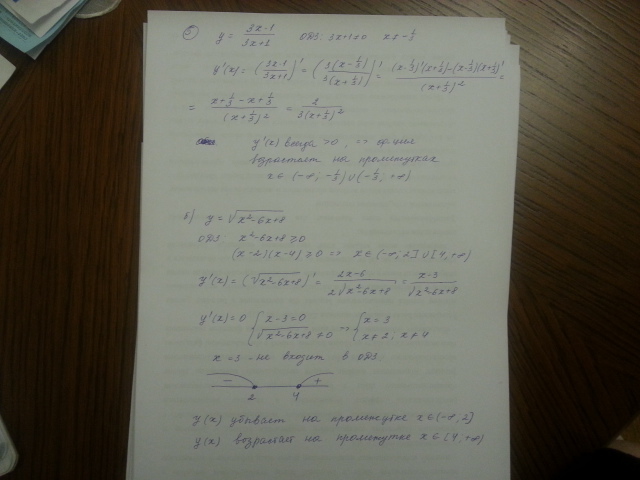 5) y = (3x-1)/(3x+1) ОДЗ: 3x+1≠0 x≠-1/3
y'(x) = ((3x-1)/(3x+1))' = (3(x-1/3)/3(x+1/3))' = ((x-1/3)'(x+1/3)-(x-1/3)(x+1/3)')/(x+1/3)² =
= (x+1/3-x+1/3)/(x+1/3)² = 2/3(x+1/3)²
y'(x) всегда >0, =>
возрастает на промежутках
x∈(-∞; -1/3)∪(-1/3; +∞)
6) y = √(x²-6x+8)
ОДЗ: x²-6x+8≥0
(x-2)(x-4)≥0 => x∈(-∞, 2]∪[4, +∞)
y'(x) = (√(x²-6x+8))' = (2x-6)/(2√(x²-6x+8)) = (x-3)/√(x²-6x+8)
y'(x)=0 { x-3=0 => { x=3
√(x²-6x+8)≠0 x≠2; x≠4
x=3 - не входит в ОДЗ.
- +
2 4
y(x) убывает на промежутке x∈(-∞, 2]
y(x) возрастает на промежутке x∈[4, +∞)